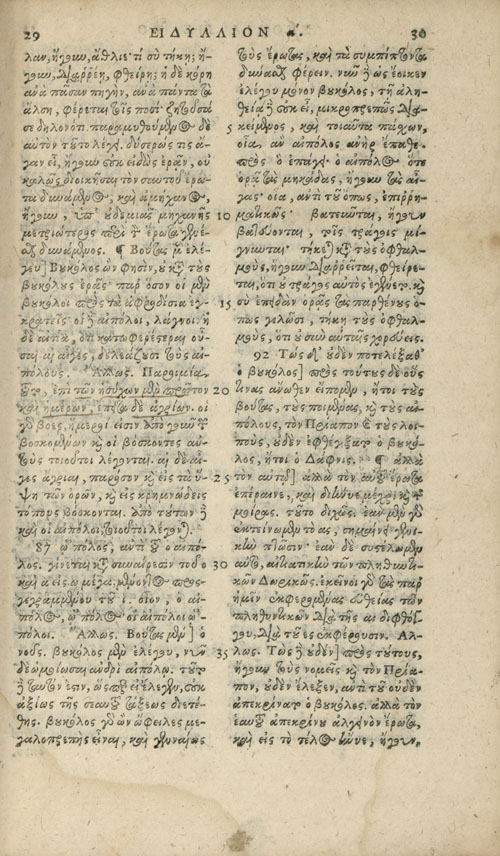 29 ΕΙΔΥΛΛΙΟΝ α΄. 30
λαν, ἤγουν, ἄθλιε· τί σὺ τήκῃ; ἤ-
γουν, διαρρέῃ, φθείρῃ; ἡ δὲ κόρη
ἀνὰ πᾶσαν πηγὴν, ἀνὰ πάντα τὰ
ἄλση, φέρεται τοῖς ποσί· ζητοῦσά
σε δηλονότι. παραμυθούμενος δὲ
αὐτὸν τῦτο λέγει. δύσερώς τις ἄ-
γαν εἶ, ἤγουν οὐκ εἰδὼς ἐρᾷν, οὐ
καλῶς διοικῆσαι τὸν σαυτοῦ ἔρω-
τα δυνάμενος, καὶ ἀμήχανος,
ἤγουν, ὑπ' οὐδεμιᾶς μηχανῆς
μετριώτερος περὶ τὸν ἔρωτα γενέ-
σθαι δυνάμενος. ¶ Βούτας μὲν ἐλέ-
γευ] Βυκόλος ὢν φησὶν, οὐ κατὰ τοὺς
βυκόλυς ἐρᾷς· παρ' ὅσον οἱ μὲν
βυκόλοι πρὸς τὰ ἀφροδίσια ἐγ-
κρατεῖς· οἱ δὲ αἰπόλοι, λάγνοι. ἡ
δὲ αἰτία, ὅτι κατωφερέστεραι οὖ-
σαι αἱ αἶγες, δελεάζουσι τοὺς αἰ-
πόλους. Ἄλλως. Παροιμία
ἐστὶν, ἐπὶ τῶν ἡσύχων μὲν πρῶτον
καὶ ἡμέρων, ἔπειτα δὲ ἀγρίων. οἱ
γὰρ βόες, ἥμεροί εἰσιν. ἀπὸ γοῦν τῶν
βοσκομένων καὶ οἱ βόσκοντες αὐ-
τοὺς τοιοῦτοι λέγονται. αἱ δὲ αἶ-
γες ἄγριαι, παρόσον καὶ εἰς τὰ ὕ-
ψη τῶν ὀρῶν, καὶ εἰς κρημνώδεις
τόπους βόσκονται. ἀπὸ τούτων δὲ
καὶ οἱ αἰπόλοι τοιοῦτοι λέγονται.
87 ᾡ πόλος, ἀντὶ τοῦ ὁ αἰπό-
λος. γίνεται κατὰ συναίρεσιν τοῦ ο
καὶ α εἰς ω μέγα, μένοντος προσ-
γεγραμμένου τοῦ ι. οἷον, ὁ αἰ-
πόλος, ᾡ πόλος· οἱ αἰπόλοι ᾡ-
πόλοι. Ἄλλως. Βούτας μὲν] ὁ
νοῦς. βυκόλος μὲν ἐλέγου, νῦν
δὲ ὡμοίωσαι ἀνδρὶ αἰπόλῳ. τῦτο
δὲ ταυτόν ἐστιν, ὡσπερεὶ ἔλεγεν, οὐκ
ἀξίως τῆς σεαυτοῦ τάξεως διετέ-
θης. βυκόλος γὰρ ὢν ὤφειλες με-
γαλοπρεπὴς εἶναι, καὶ γενναίως
τοὺς ἔρωτας, καὶ τὰ συμπίπτοντα
δύνασθαι φέρειν. νῦν δὲ ὡς ἔοικεν
ἐλέγου μόνον βυκόλος, τῇ ἀλη-
θείᾳ δὲ οὐκ εἶ, μικροπρεπῶς δια-
5 κείμενος, καὶ τοιαῦτα πάσχων,
οἷα, ἂν αἰπόλος ἀνὴρ ἔπαθε.
πρὸς ὃ ἐπάγει· ὁ αἰπόλος ὅτε
ὁρᾷ τὰς μηκάδας, ἤγουν τὰς αἶ-
γας· οἷα, ἀντὶ τοῦ ὅπως, ἐπιρρη-
10 ματικῶς· βατεῦνται, ἤγουν
βαίνονται, τοῖς τράγοις μί-
γνυνται· τήκεται κατὰ τοὺς ὀφθαλ-
μοὺς, ἤγουν διαρρεῖται, φθείρε-
ται, ὅτι οὐ τράγος αὐτὸς ἐγένετο. καὶ
15 σὺ ἐπειδὰν ὁρᾷς τὰς παρθένους ὅ-
πως γελῶσι, τήκῃ τοὺς ὀφθαλ-
μοὺς, ὅτι οὐ σὺν αὐταῖς χορεύεις.
92 Τὼς δ' οὐδὲν ποτελέξαθ'
ὁ βυκόλος] πρὸς τούτους δὲ οὓς
20 κἀνας ἄνωθεν εἴπομεν, ἤτοι τοὺς
βούτας, τοὺς ποιμένας, καὶ τοὺς αἰ-
πόλους, τὸν Πρίαπον καὶ τοὺς λοι-
ποὺς, οὐδὲν ἐφθέγξατο ὁ βυκό-
λος, ἤτοι ὁ Δάφνις. ¶ ἀλλὰ
25 τὸν αὑτῶ] ἀλλὰ τὸν αὑτοῦ ἔρωτα
ἐπέραινε, καὶ διήνυε μέχρι καὶ τῆς
μοίρας. τῦτο διχῶς. ἐὰν μὲν γὰρ
ἐκτείνωμεν τὸ ας, σημαίνει γενι-
κὴν πτῶσιν· ἐὰν δὲ συστέλωμεν
30 αὐτὸ, αἰτιατικὴν τῶν πληθυντι-
κῶν Δωρικῶς. ἐκεῖνοι γὰρ τὰς παρ'
ἡμῖν ἐκφερομένας εὐθείας τῶν
πληθυντικῶν διὰ τῆς αι διφθόγ-
γου, διὰ τοῦ ες ἐκφέρουσιν. Ἄλ-
35 λως. Τὼς δ' οὐδὲν] πρὸς τύτους,
ἤγουν τοὺς νομεῖς καὶ τὸν Πρία-
πον, οὐδὲν ἔλεξεν, ἀντὶ τοῦ οὐδὲν
ἀπεκρίνατο ὁ βυκόλος. ἀλλὰ τὸν
ἑαυτοῦ ἀπεκρίνου ἀλγεινὸν ἔρωτα,
καὶ εἰς τὸ τέλος ἤνυε, ἤγουν,